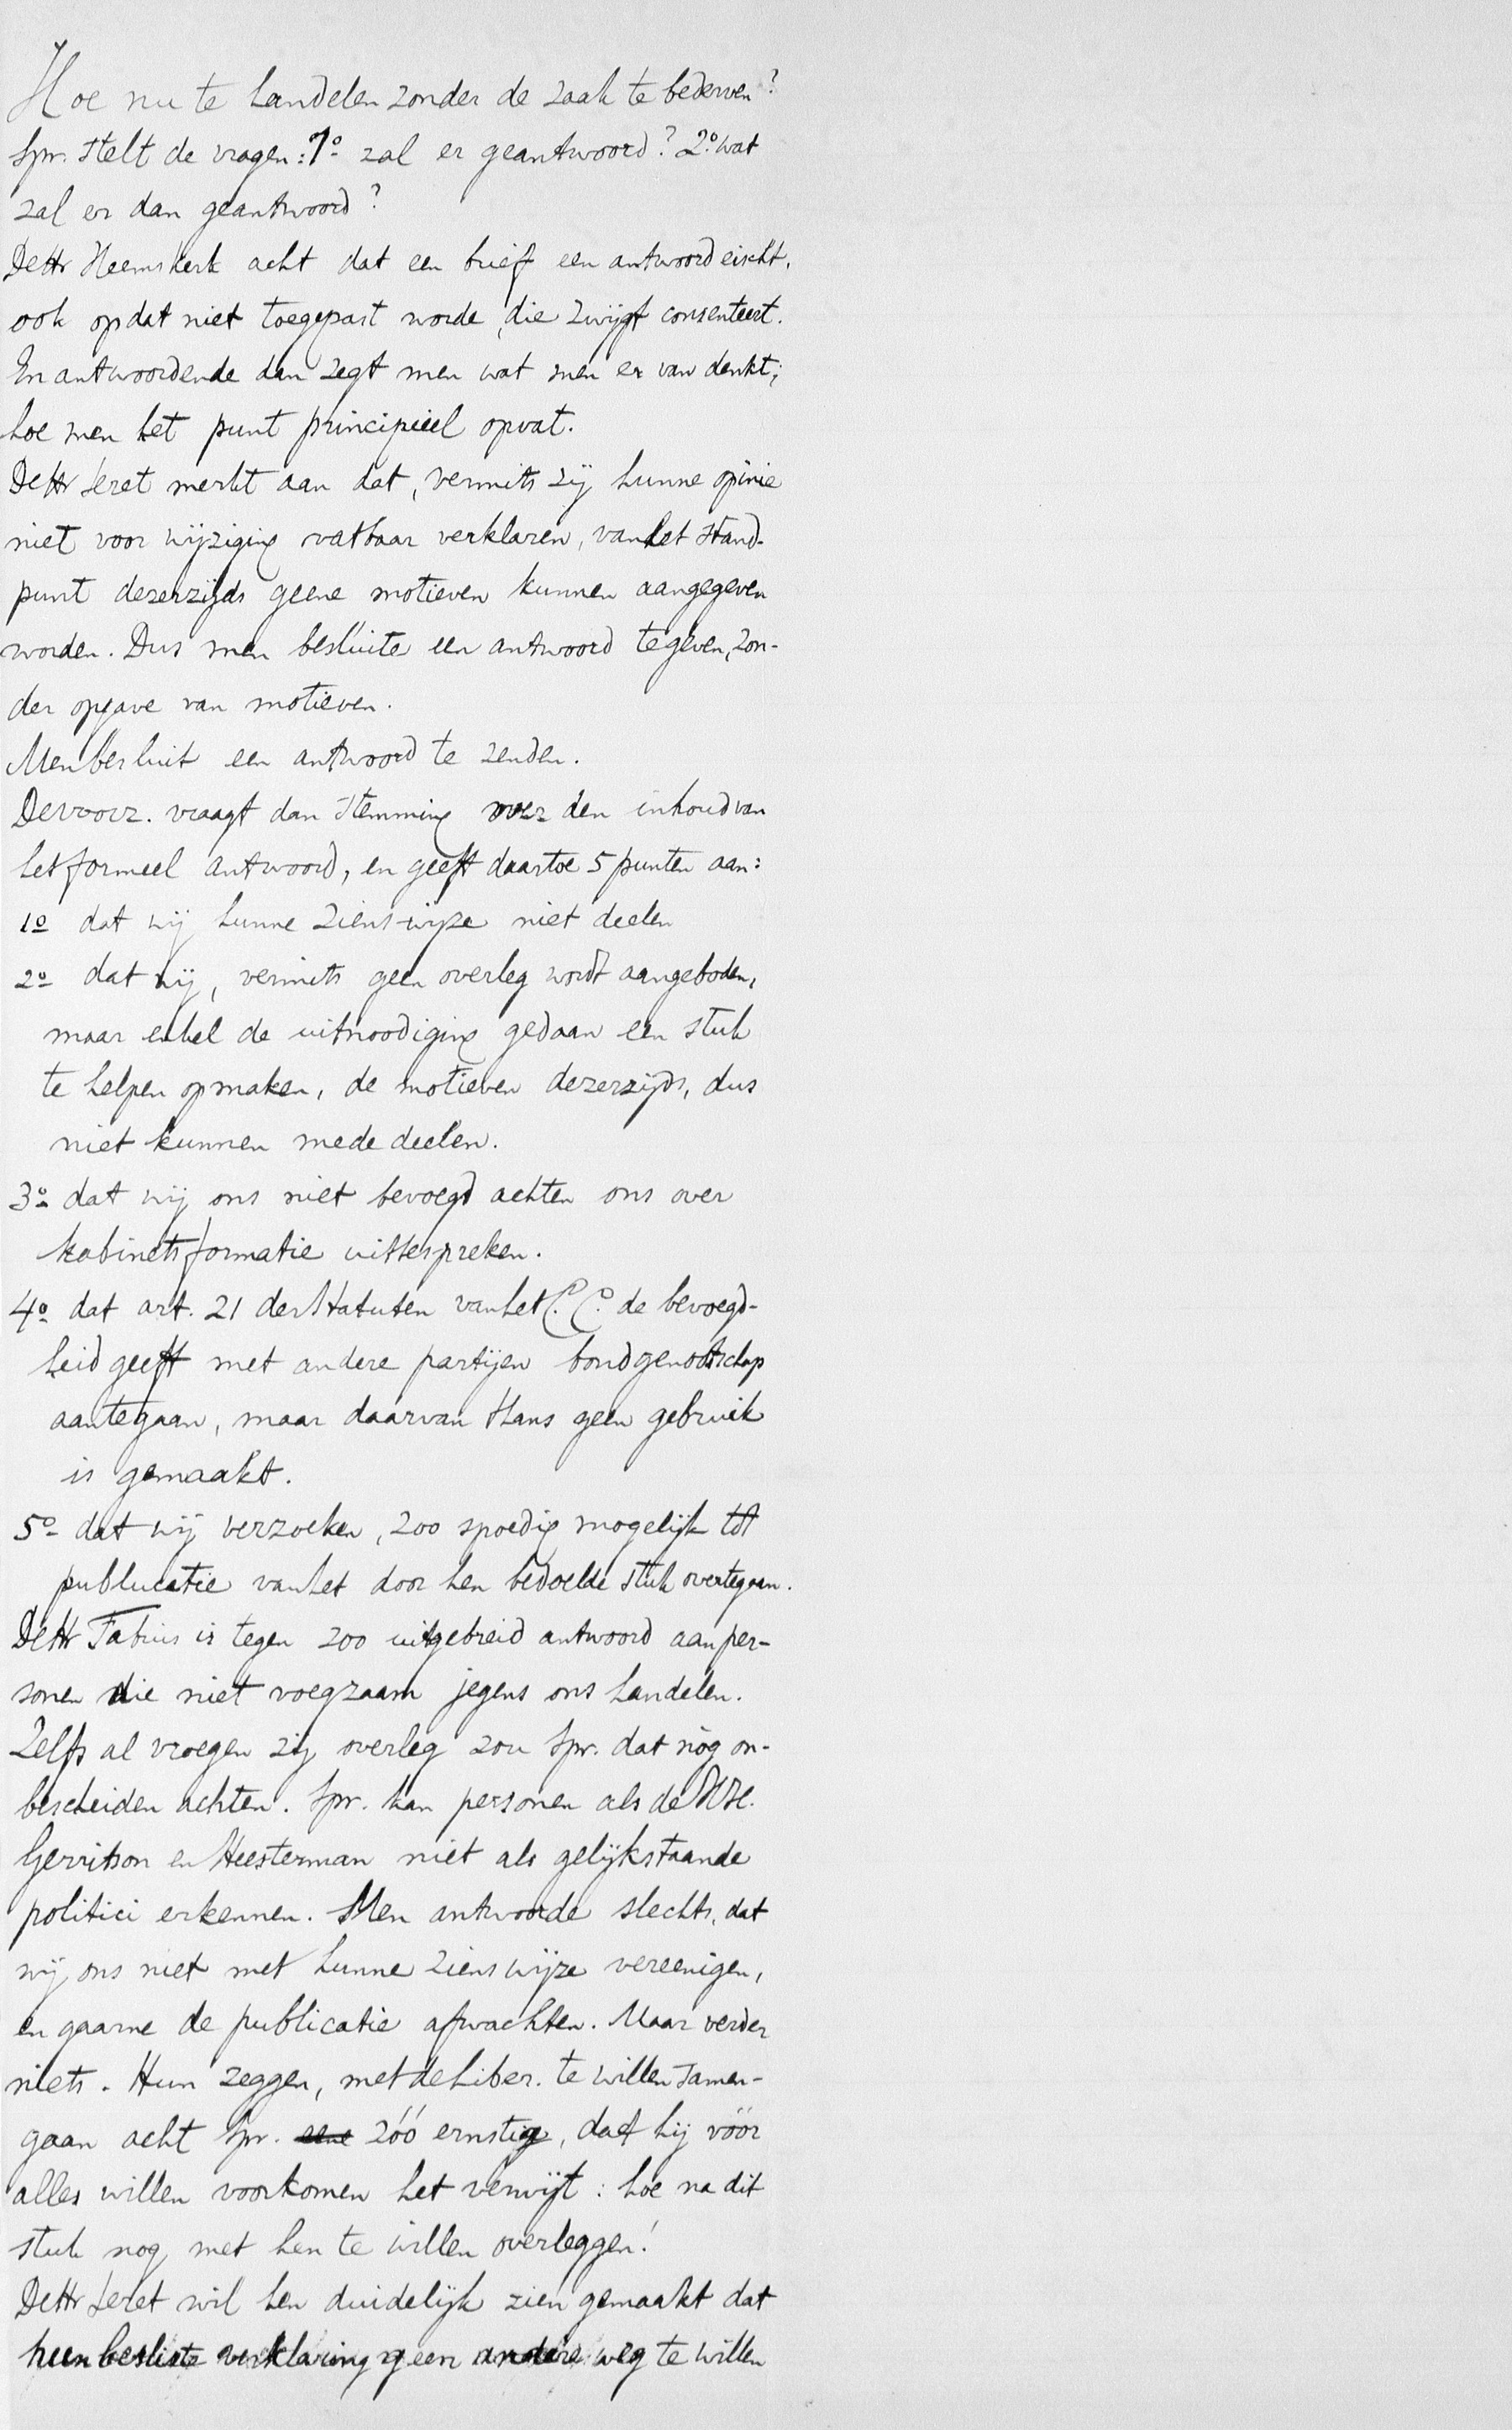 Hoe nu te handelen zonder de zaak te bederven?
Spr. stelt de vragen: 1o zal er geantwoord? 2o wat
zal er dan geantwoord?
De Hr Heemskerk acht dat een brief een antwoord eischt,
ook opdat niet toegepast worde, die zwijgt consenteert.
En antwoordende dan zegt men wat men er van denkt;
hoe men het punt principieel opvat.
De Hr Seret merkt aan dat, vermits zij hunne opinie
niet voor wijziging vatbaar verklaren, van het stand-
punt dezerzijds geene motieven kunnen aangegeven
worden. Dus men besluite een antwoord te geven, zon-
der opgave van motieven.
Men besluit een antwoord te zenden.
De voorz. vraagt dan stemming over den inhoud van
het formeel antwoord, en geeft daartoe 5 punten aan:
1o dat wij hunne zienswijze niet deelen
2o dat wij, vermits geen overleg wordt aangeboden,
maar enkel de uitnoodiging gedaan een stuk
te helpen opmaken, de motieven dezerzijds, dus
niet kunnen mededeelen.
3o dat wij ons niet bevoegd achten ons over
kabinetsformatie uittespreken.
4o dat art. 21 der Statuten van het C.C. de bevoegd-
heid geeft met andere partijen bondgenootschap
aantegaan, maar daarvan thans geen gebruik
is gemaakt.
5o dat wij verzoeken, zoo spoedig mogelijk tot
publucatie van het door hen bedoelde stuk overtegaan.
De Hr Fabius is tegen zoo uitgebreid antwoord aan per-
sonen die niet voegzaam jegens ons handelen.
Zelfs al vroegen zij overleg zou Spr. dat nòg on-
bescheiden achten. Spr. kan personen als de HH.
Gerritson en Heesterman niet als gelijkstaande
politici erkennen. Men antwoorde slechts, dat
wij ons niet met hunne zienswijze vereenigen,
en gaarne de publicatie afwachten. Maar verder
niets. Hun zeggen, met de Liber. te willen samen-
gaan acht Spr. zóó ernstig, dat hij vóór
alles willen voorkomen het verwijt: hoe na dit
stuk nog met hen te willen overleggen!
De Hr Seret wil hen duidelijk zien gemaakt dat
hun besliste verklaring geen andere weg te willen